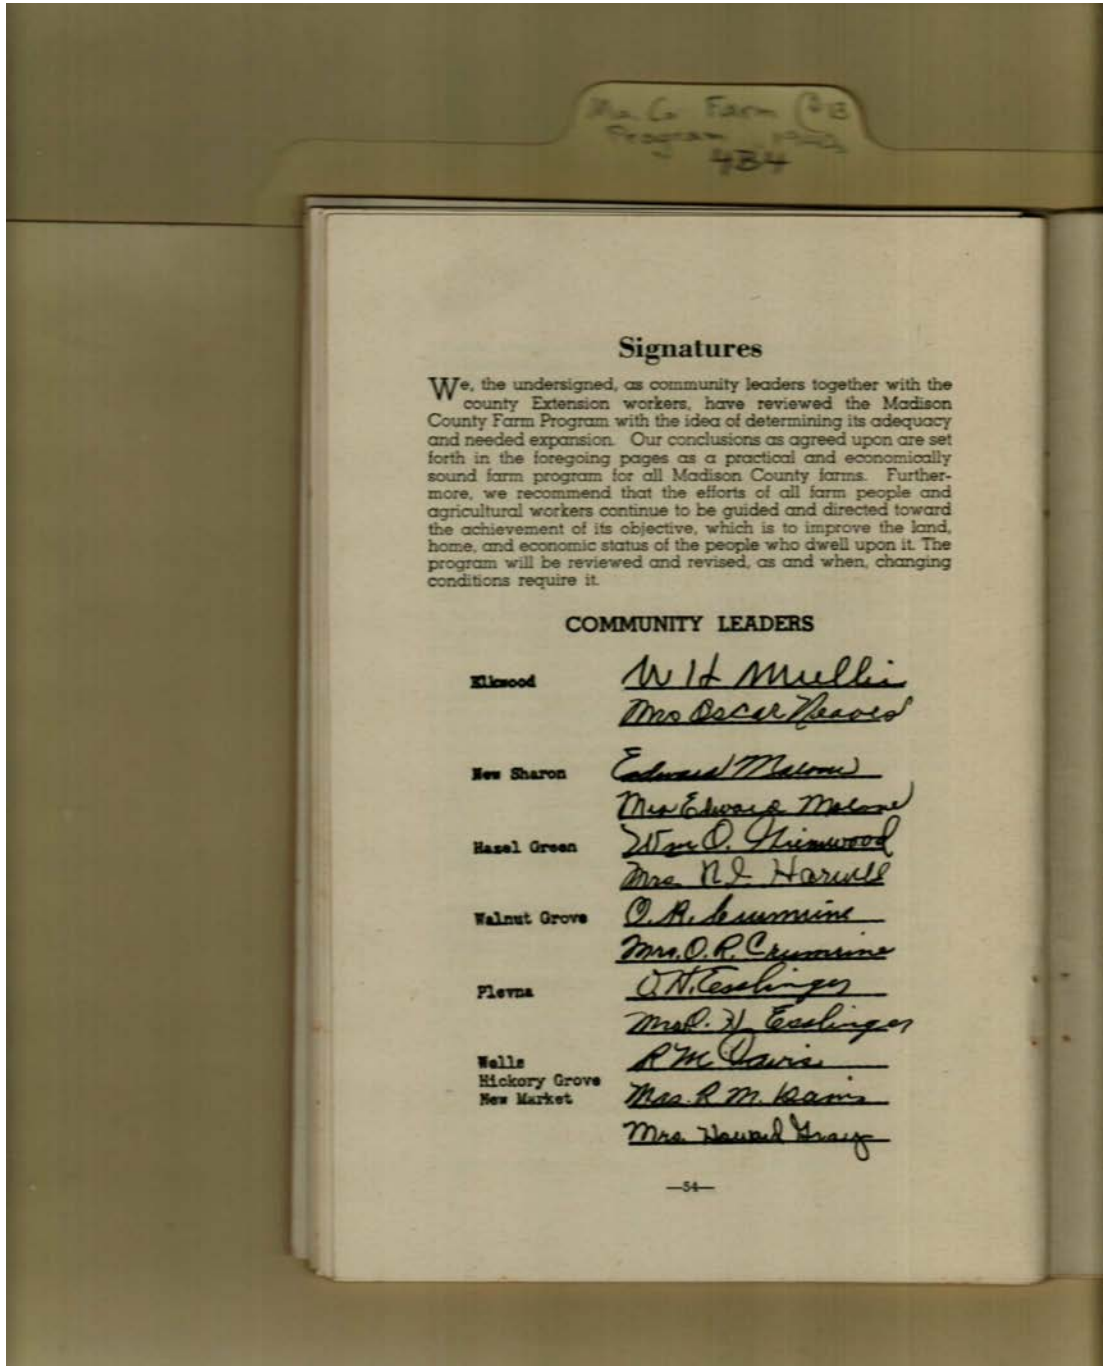 Ma. Co Farm
Program
4B4
Signatures
We, the undersigned, as community leaders together with the
county Extension workers, have reviewed the Madison
County Farm Program with the idea of determining its adequacy
and needed expansion. Our conclusions as agreed upon are set
forth in the foregoing pages as a practical and economically
sound farm program for all Madison County farms. Further-
more, we recommend that the efforts of all farm people and
agricultural workers continue to be guided and directed toward
the achievement of its objective, which is to improve the land,
home, and economic status of the people who dwell upon it. The
program will be reviewed and revised, as and when, changing
conditions require it.
COMMUNITY LEADERS
Elkwood W H Mullin
Mrs Oscar Neaves
New Sharon Edward Malone
Mrs Edward Malone
Hazel Green Wm O. Grimwood
Mrs. Harwell
Walnut Grove O. R. Crumrine
Mrs. O. R. Crumrine
Plevna O. H. Esslinger
Mrs O. H. Esslinger
Wells R M Davis
Hickory Grove
New Market Mrs. R M. Davis
Mrs. Howard Gray
—54—